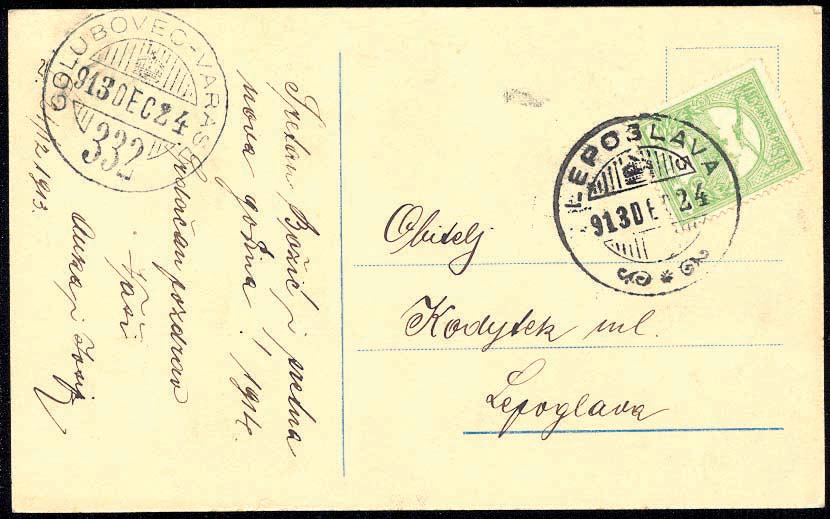 GOLUBOVEC-VARASD
913 DEC 24
332
Sretan Božić i sretna
nova godina! 1914.
Srdačan pozdrav
Vaši
12. 1913.
LEPOGLAVA
913 DEC 24
MAGYAR KIR. POSTA
Obitelj
Kodytek ml.
Lepoglava